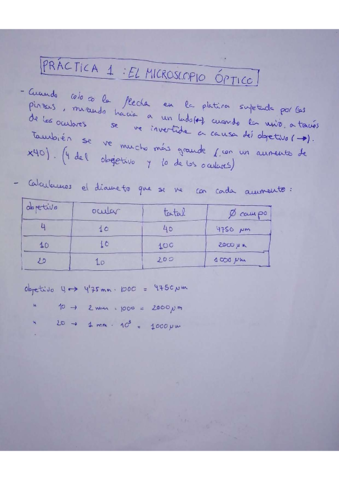 PRÁCTICA 1 : EL MICROSCOPIO ÓPTICO
- Cuando la flecha en la platina sujetada por las
pinzas, mirando hacia a un lado (←) cuando la miro, a través
de los oculares se ve invertida a causa del objetivo (→).
También se ve mucho más grande (con un aumento de
x40). (4 del objetivo y 10 de los oculares)
- Calculamos el diámetro que se ve con cada aumento:
objetivo ocular total Ø campo
4 10 40 4750 µm
10 10 100 2000 µm
20 10 200 1000 µm
objetivo 4 → 4'75 mm · 1000 = 4750 µm
" 10 → 2 mm · 1000 = 2000 µm
" 20 → 1 mm · 10³ = 1000 µm